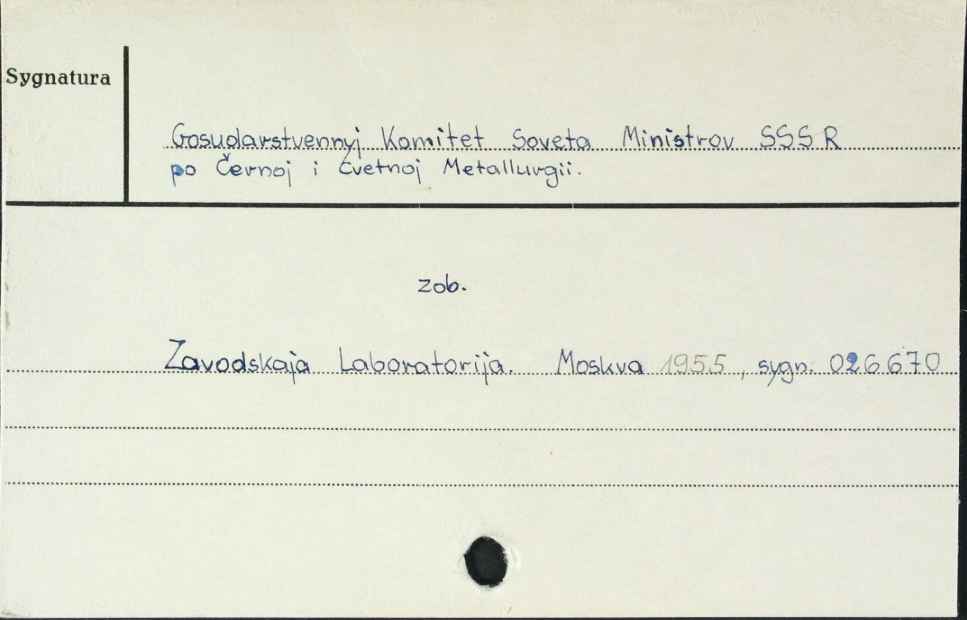 Sygnatura
Gosudarstvennyj Komitet Soveta Ministrov SSSR
po Černoj i Cvetnoj Metallurgii.
zob.
Zavodskaja Laboratorija. Moskva 1955, sygn. 026670